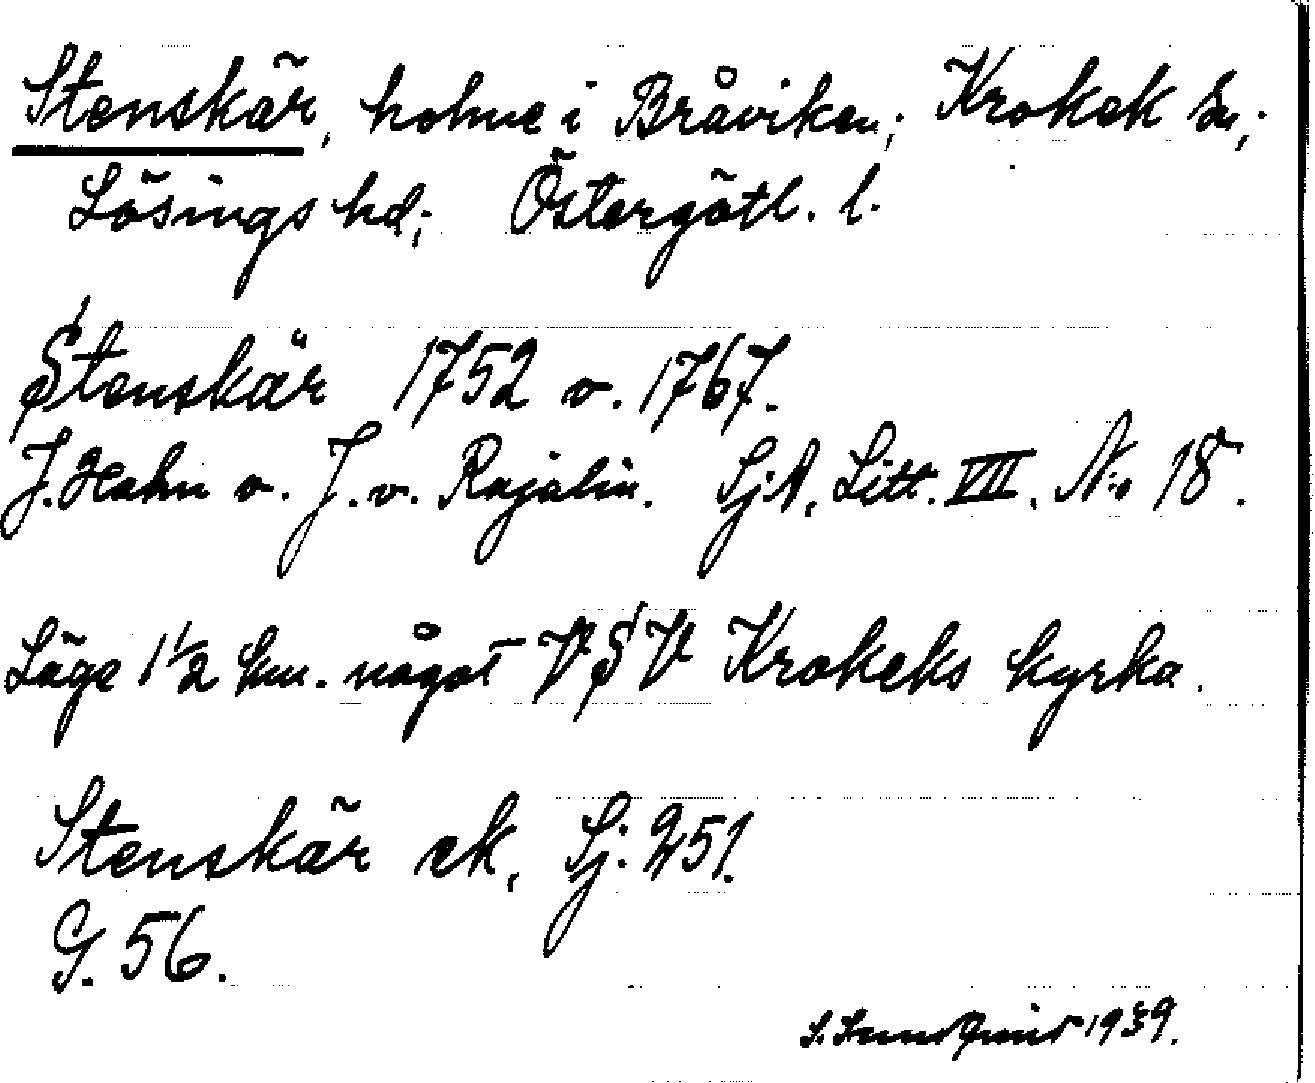 Stenskär, holme i Bråviken; Krokek sn;
Lösings hd; Östergötl. l.
Stenskär 1752 o. 1767.
J. Hahn o. J. v. Rajalin. Sj.A. Litt. VII. No 18.
Läge 1 1/2 km. något VSV Krokeks kyrka.
Stenskär ek. Sj. 251.
G. 56.
S. 1939.